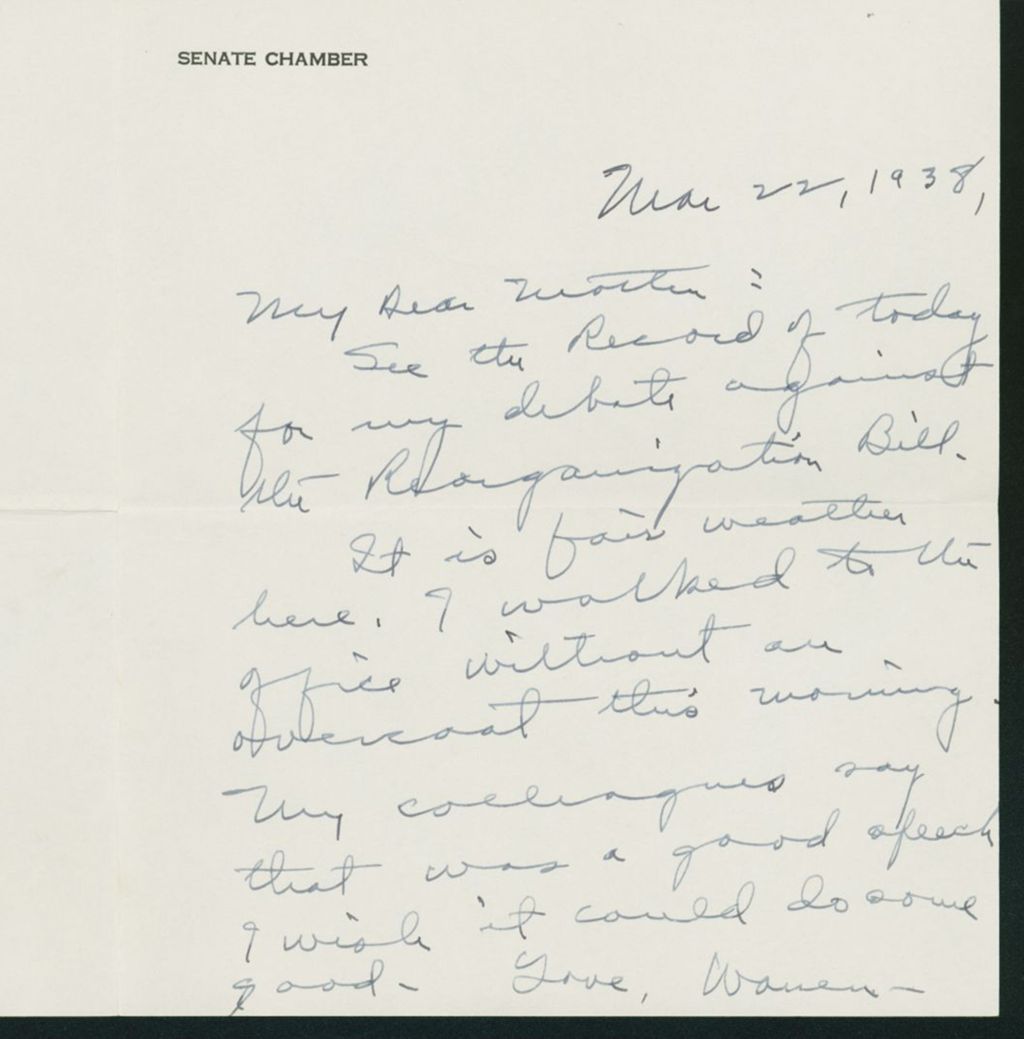 SENATE CHAMBER
Mar 22, 1938,
My Dear Mother:
See the Record of today
for my debate against
the Reorganization Bill.
It is fair weather
here. I walked to the
office without an
overcoat this morning.
My colleagues say
that was a good speech
I wish it could do some
good- Love, Warren-